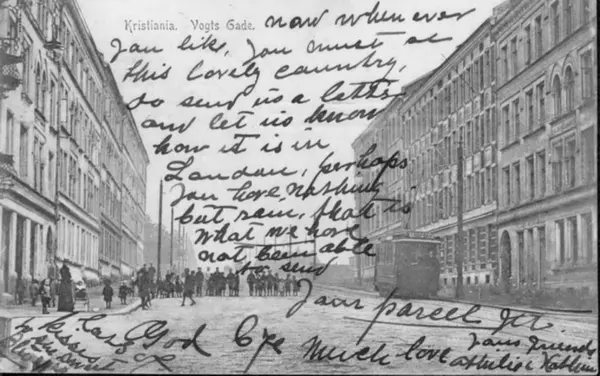 Kristiania. Vogts Gade.
now whenever
you like, you must see
this lovely country,
do send us a letter
and let us know
how it is in
London, perhaps
you have nothing
but rain, that is
what we have
not been able
to send
your parcel yet
Good Bye
Much love
yours friends